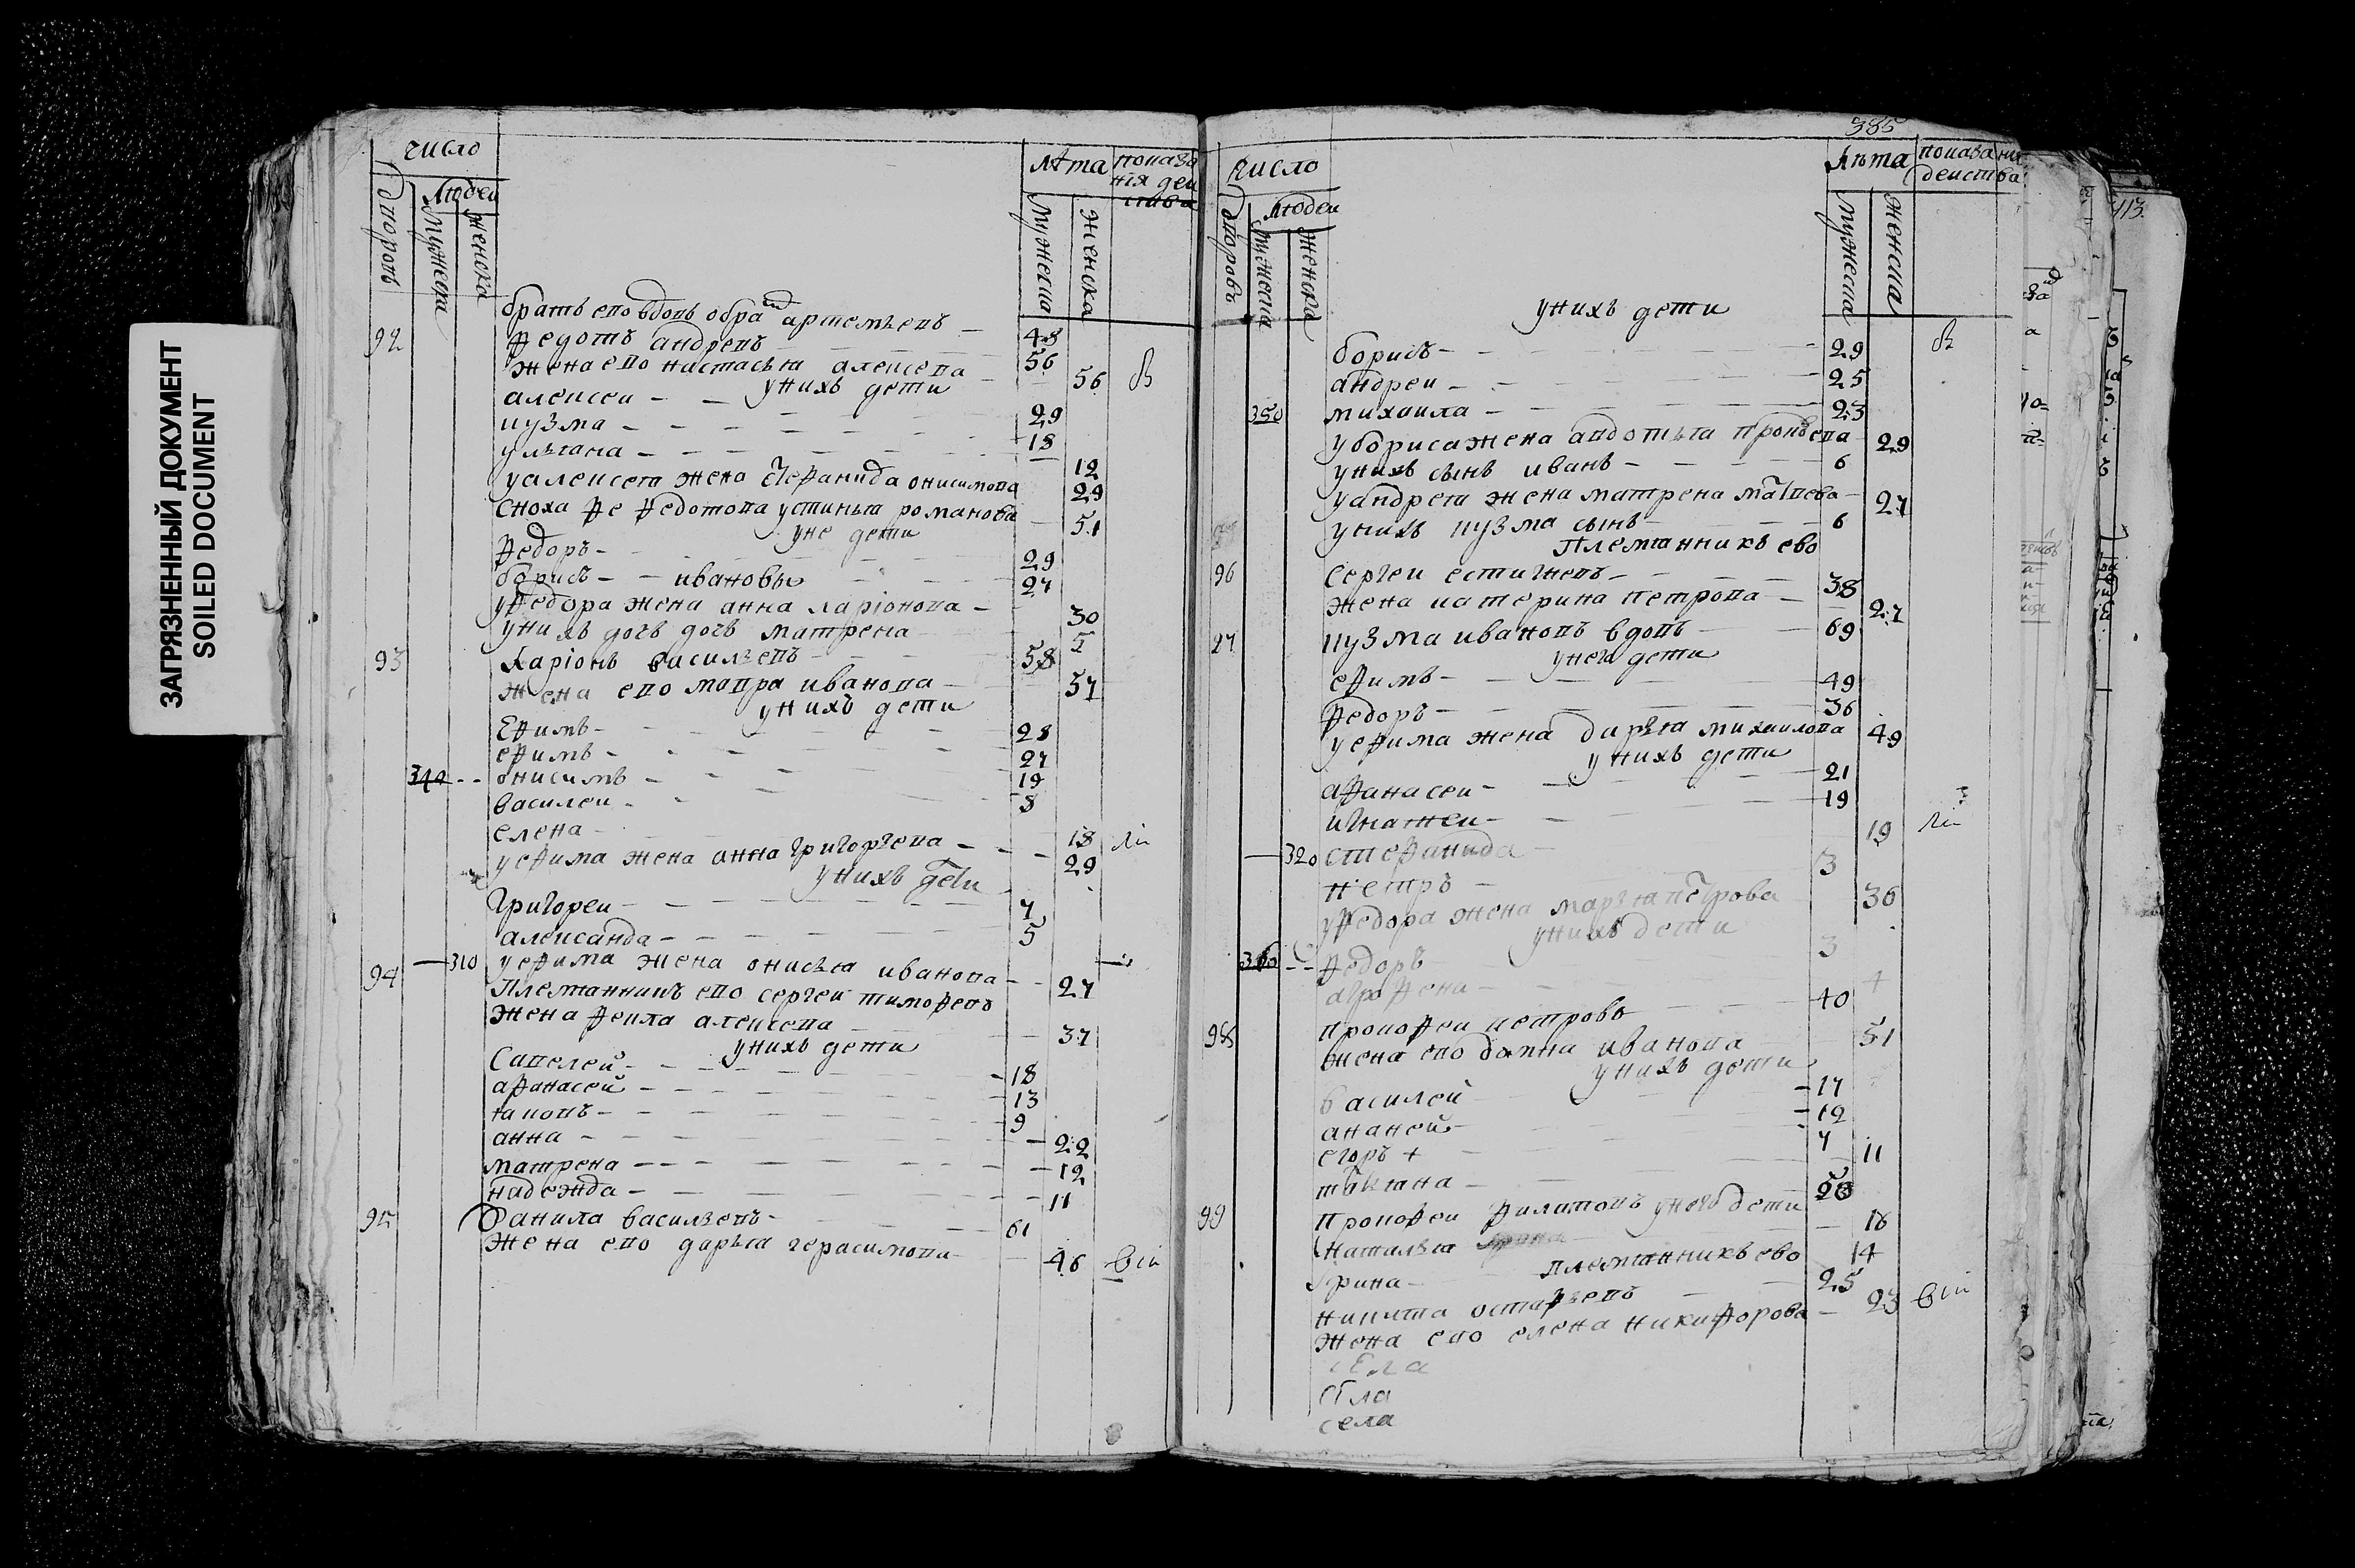 ЗАГРЯЗНЕННЫЙ ДОКУМЕНТ
SOILED DOCUMENT
число
Людеи
дворовъ
мужеска
женска
Лѣта
показа
нїя деи
ства
мужеска
женска
братъ ево вдовъ артемьевъ 48
92 Федотъ андревъ 56
жена ево настасья алексева 56
у нихъ дети
алексеи 29
кузма 18
ульяна 12
у алексея жена степанида онисимова 29
сноха Федотова устинья романова 51
у не дети
Федоръ 29
борисъ ивановы 27
у Федора жена анна ларїонова 30
у нихъ дочь дочь матрена 5
93 Ларїонъ васильевъ 58
жена ево мавра иванова 57
у нихъ дети
Ефимъ 28
ефимъ 27
340 онисимъ 19
василеи 8
елена 18
у ефима жена анна григорьева 29
у нихъ дети
григореи 7
александа 5
310 у ефима жена онисья иванова 27
94 Племянникъ ево сергеи тимофевъ
жена фекла алексева 37
у нихъ дети
Савелей 18
афанасей 13
яковъ 9
анна 22
матрена 12
надежда 11
95 Данила васильевъ 61
жена ево дарья герасимова 46
385
число
Людеи
дворовъ
мужеска
женска
Лѣта
показания
деиства
мужеска
женска
у нихъ дети
борисъ 29
андреи 25
350 михаила 23
у бориса жена авдотья 29
у нихъ сынъ иванъ 6
у андрея жена матрена матвева 27
у нихъ кузма сынъ 6
Племянникъ ево
96 Сергеи естигневъ 38
жена катерина петрова 27
97 кузма ивановъ вдовъ 69
у него дети
ефимъ 49
Федоръ 36
у ефима жена дарья михаилова 49
у нихъ дети
афанасеи 21
игнатеи 19
320 степанида 19
петръ 3
у Федора жена марья петрова 36
у нихъ дети
360 Федоръ 3
агрофена 4
98 прокофеи петровъ 40
жена ево домна иванова 51
у нихъ дети
василей 17
ананей 12
егоръ + 7
татьяна 11
99 прокофеи филатовъ у него дети
наталья 18
Арина 14
племянникъ ево
никита остафьевъ 25
жена ево елена никифорова 23
села
села
113